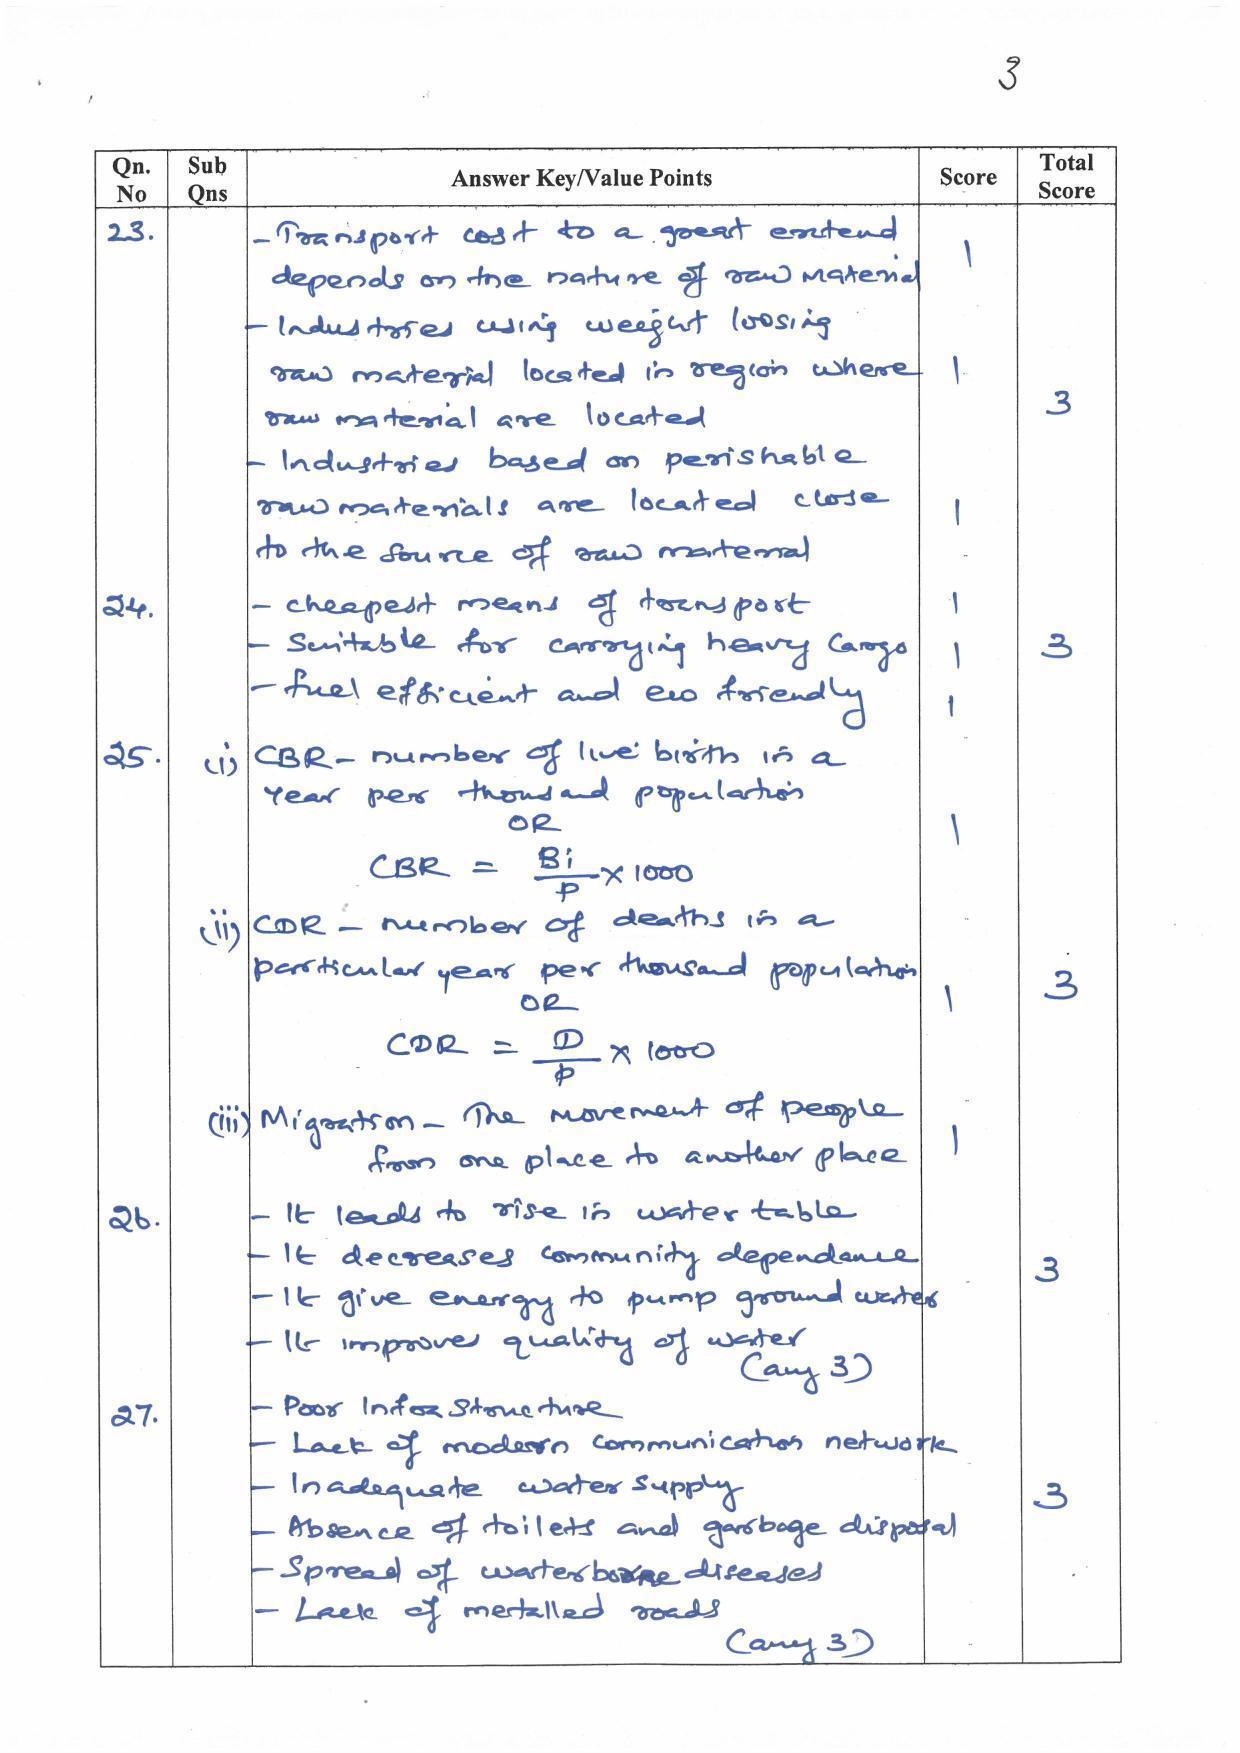 3
Qn. No Sub Qns Answer Key/Value Points Score Total Score
23. - Transport cost to a great extend 1
depends on the nature of raw material
- Industries using weeight loosing
raw material located in region where 1
raw material are located 3
- Industries based on perishable
raw materials are located close 1
to the source of raw material
24. - cheapest means of transport 1
- Suitable for carrying heavy Cargo 1 3
- fuel efficient and eco friendly 1
25. (i) CBR - number of live birth in a
Year per thousand population
OR 1
CBR = Bi/P × 1000
(ii) CDR - number of deaths in a
particular year per thousand population 3
OR 1
CDR = D/P × 1000
(iii) Migration - The movement of people 1
from one place to another place
26. - It leads to rise in water table
- It decreases community dependance 3
- It give energy to pump ground water
- It improves quality of water
(any 3)
27. - Poor Infra Structure
- Lack of modern communication network
- Inadequate water supply 3
- Absence of toilets and garbage disposal
- Spread of waterborne diseases
- Lack of metalled roads
(any 3)